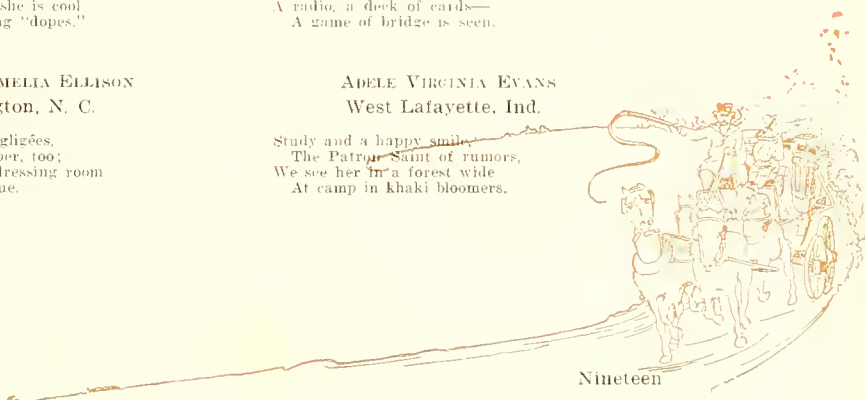 she is cool
ng "dopes."
MELIA ELLISON
gton, N. C.
gligées,
per, too;
dressing room
ue.
A radio, a deck of cards—
A game of bridge is seen.
ADELE VIRGINIA EVANS
West Lafayette, Ind.
Study and a happy smile,
The Patron Saint of rumors,
We see her in a forest wide
At camp in khaki bloomers.
Nineteen